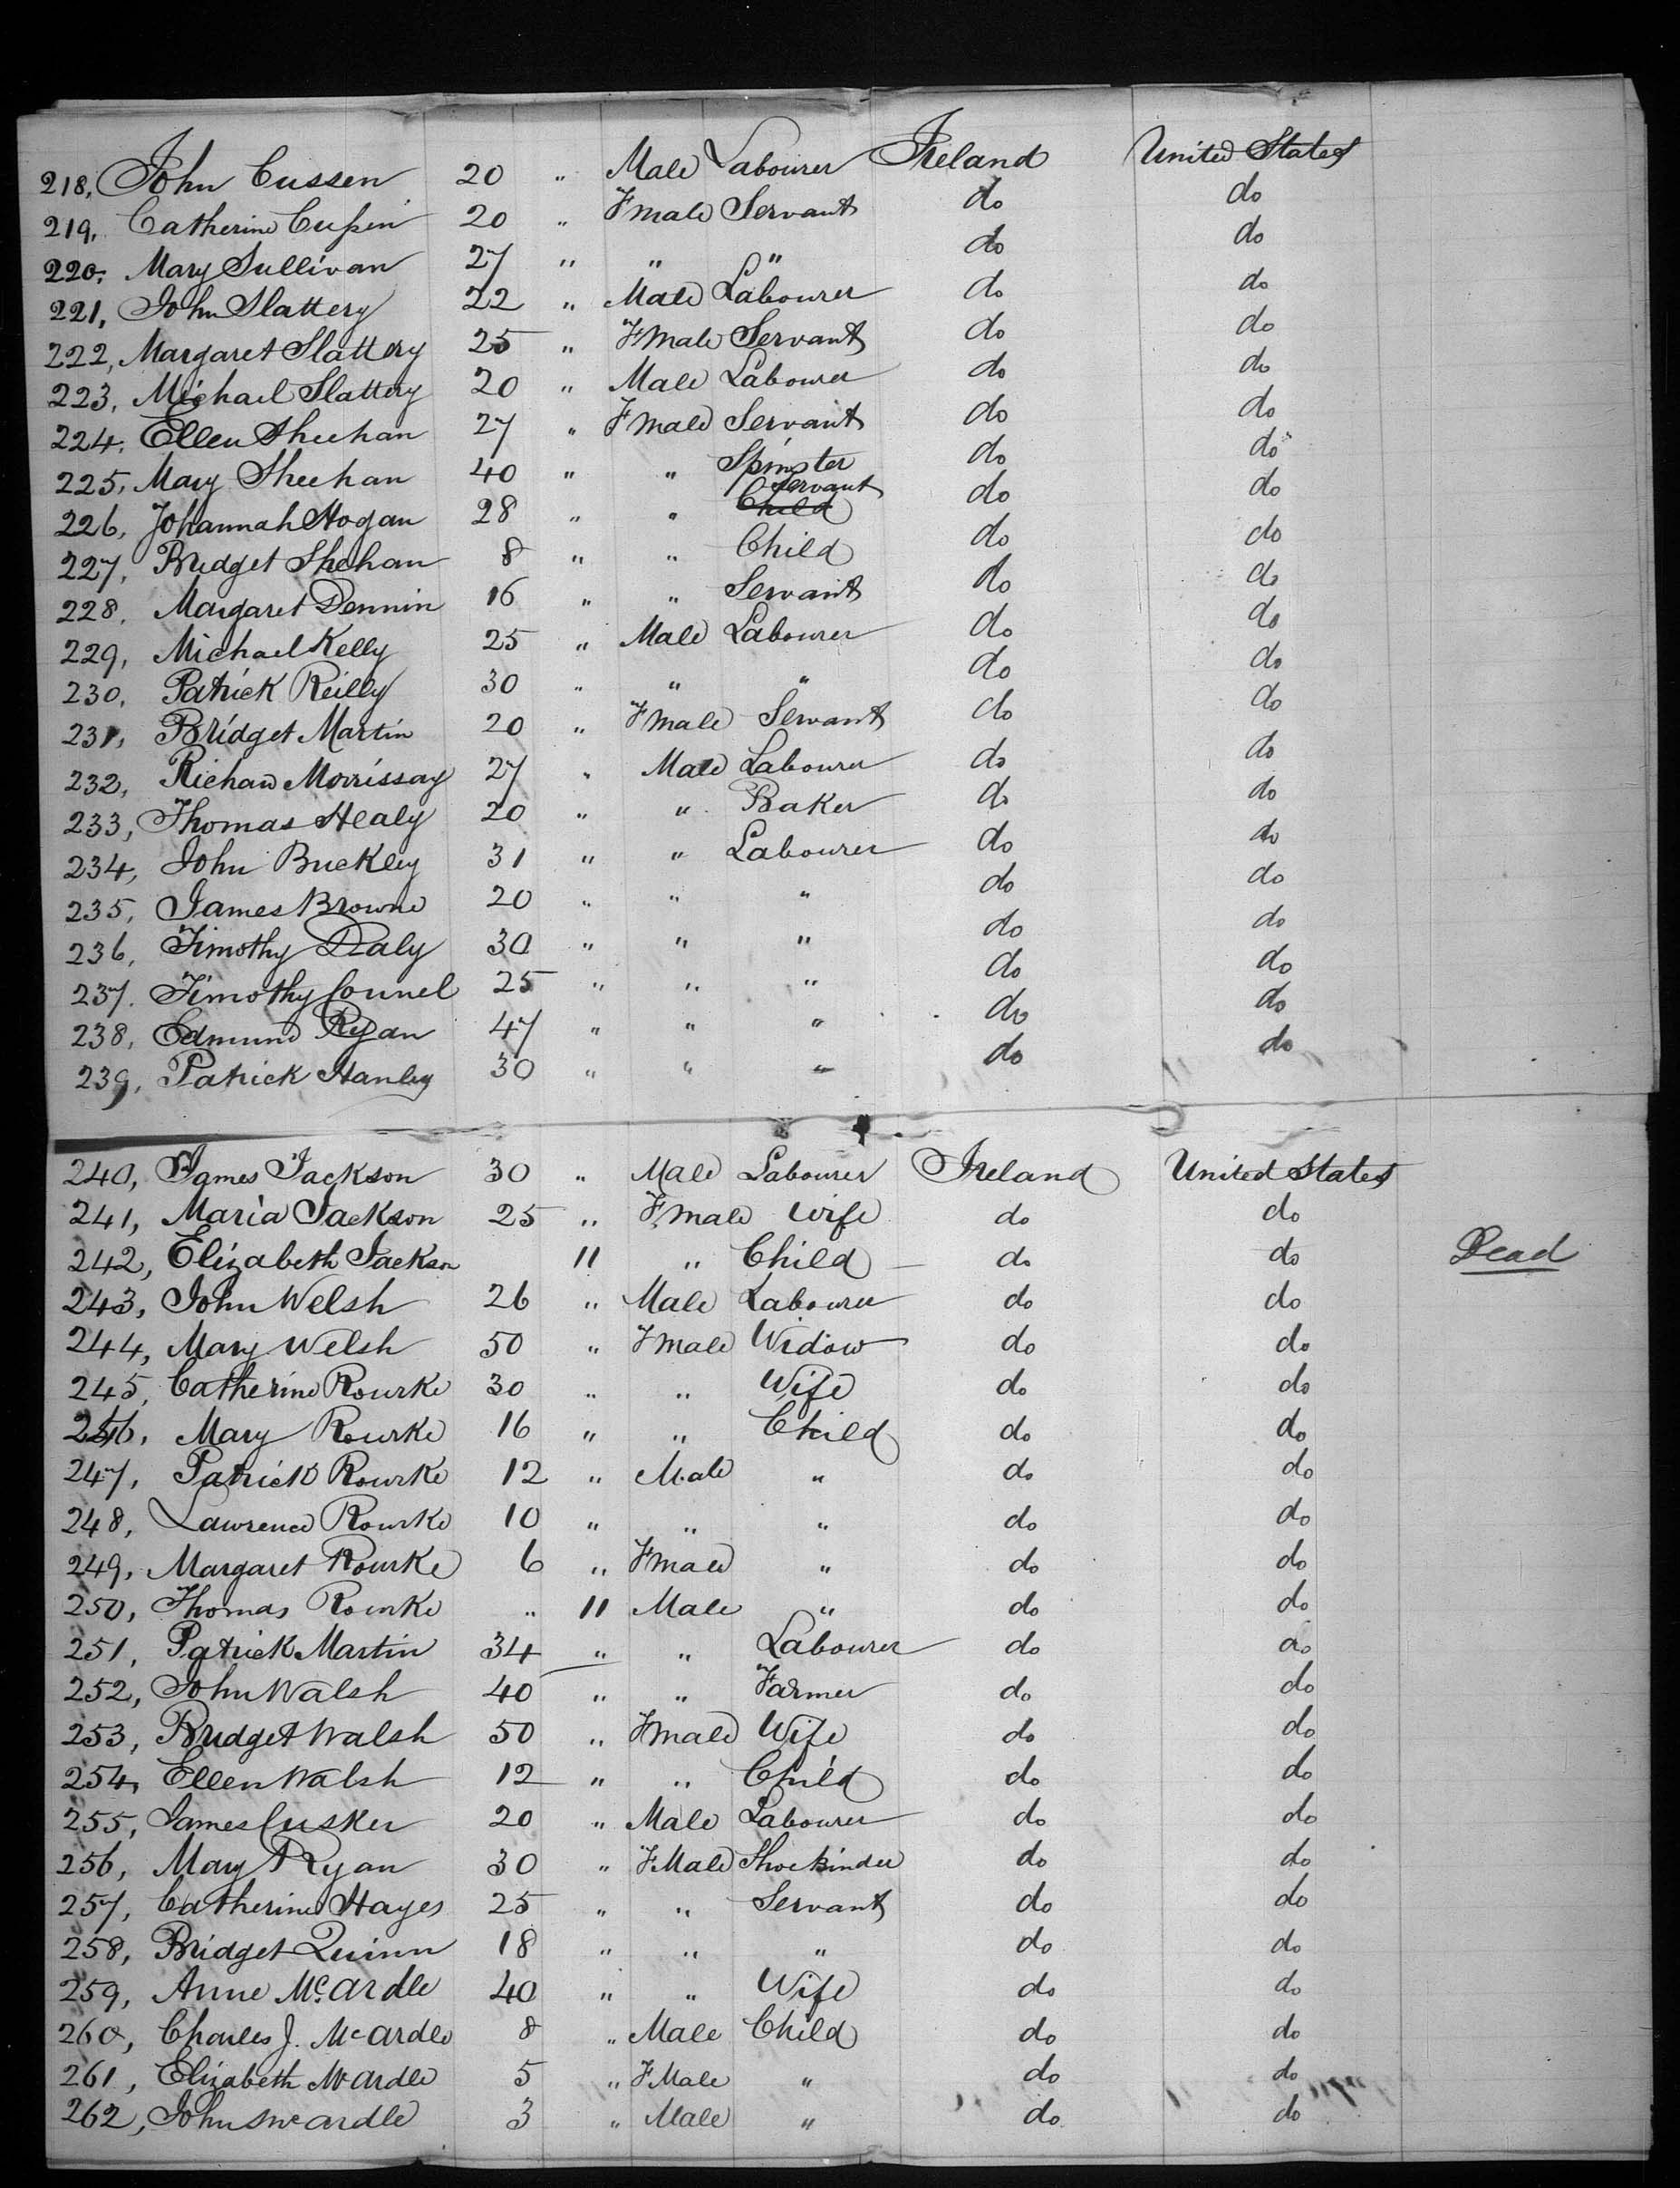 218, John Cussen 20 " Male Labourer Ireland United States
219, Catherine Cussin 20 " Fmale Servant do do
220, Mary Sullivan 27 " " " do do
221, John Slattery 22 " Male Labourer do do
222, Margaret Slattery 25 " Fmale Servant do do
223, Michael Slattery 20 " Male Labourer do do
224, Ellen Sheehan 27 " Fmale Servant do do
225, Mary Sheehan 40 " " Spinster do do
226, Johannah Hogan 28 " " Child Servant do do
227, Bridget Shehan 8 " " Child do do
228, Margaret Dennin 16 " " Servant do do
229, Michael Kelly 25 " Male Labourer do do
230, Patrick Reilly 30 " " " do do
231, Bridget Martin 20 " Fmale Servant do do
232, Richard Morrissay 27 " Male Labourer do do
233, Thomas Healy 20 " " Baker do do
234, John Buckley 31 " " Labourer do do
235, James Browne 20 " " " do do
236, Timothy Daly 30 " " " do do
237. Timothy Connel 25 " " " do do
238, Edmund Ryan 47 " " " do do
239, Patrick Hanley 30 " " " do do
240, James Jackson 30 " Male Labourer Ireland United States
241, Maria Jackson 25 " Fmale Wife do do
242, Elizabeth Jackson 11 " Child do do Dead
243, John Welsh 26 " Male Labourer do do
244, Mary Welsh 50 " Fmale Widow do do
245, Catherine Rourke 30 " " Wife do do
246, Mary Rourke 16 " " Child do do
247, Patrick Rourke 12 " Male " do do
248, Lawrence Rourke 10 " " " do do
249, Margaret Rourke 6 " Fmale " do do
250, Thomas Rourke " 11 Male " do do
251, Patrick Martin 34 " " Labourer do do
252, John Walsh 40 " " Farmer do do
253, Bridget Walsh 50 " Fmale Wife do do
254, Ellen Walsh 12 " " Child do do
255, James Cusker 20 " Male Labourer do do
256, Mary Ryan 30 " FMale Shoebinder do do
257, Catherine Hayes 25 " " Servant do do
258, Bridget Quinn 18 " " " do do
259, Anne McArdle 40 " " Wife do do
260, Charles J. McArdle 8 " Male Child do do
261, Elizabeth McArdle 5 " FMale " do do
262, John McArdle 3 " Male " do do